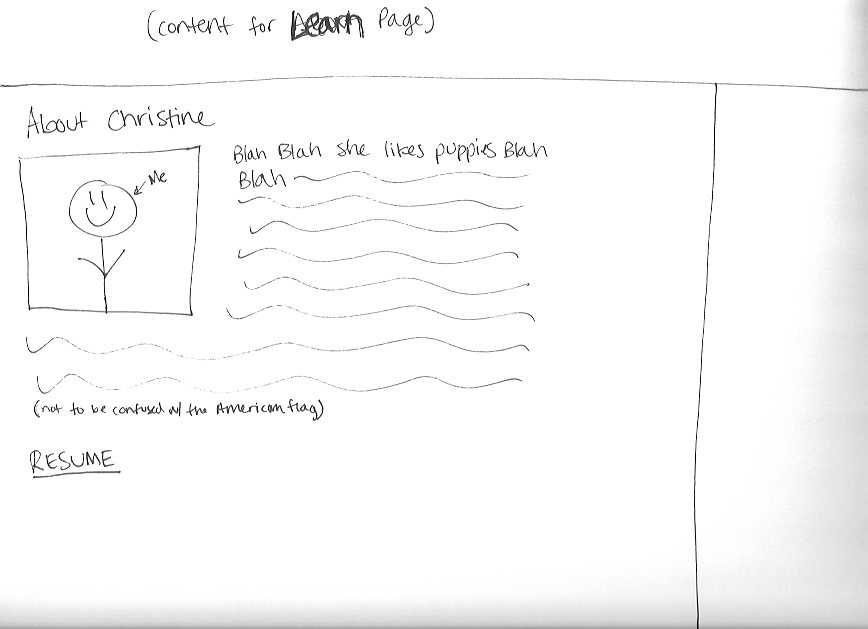 (content for Learn Page)
About Christine
Me
Blah Blah she likes puppies Blah
Blah
(not to be confused w/ the American flag)
RESUME